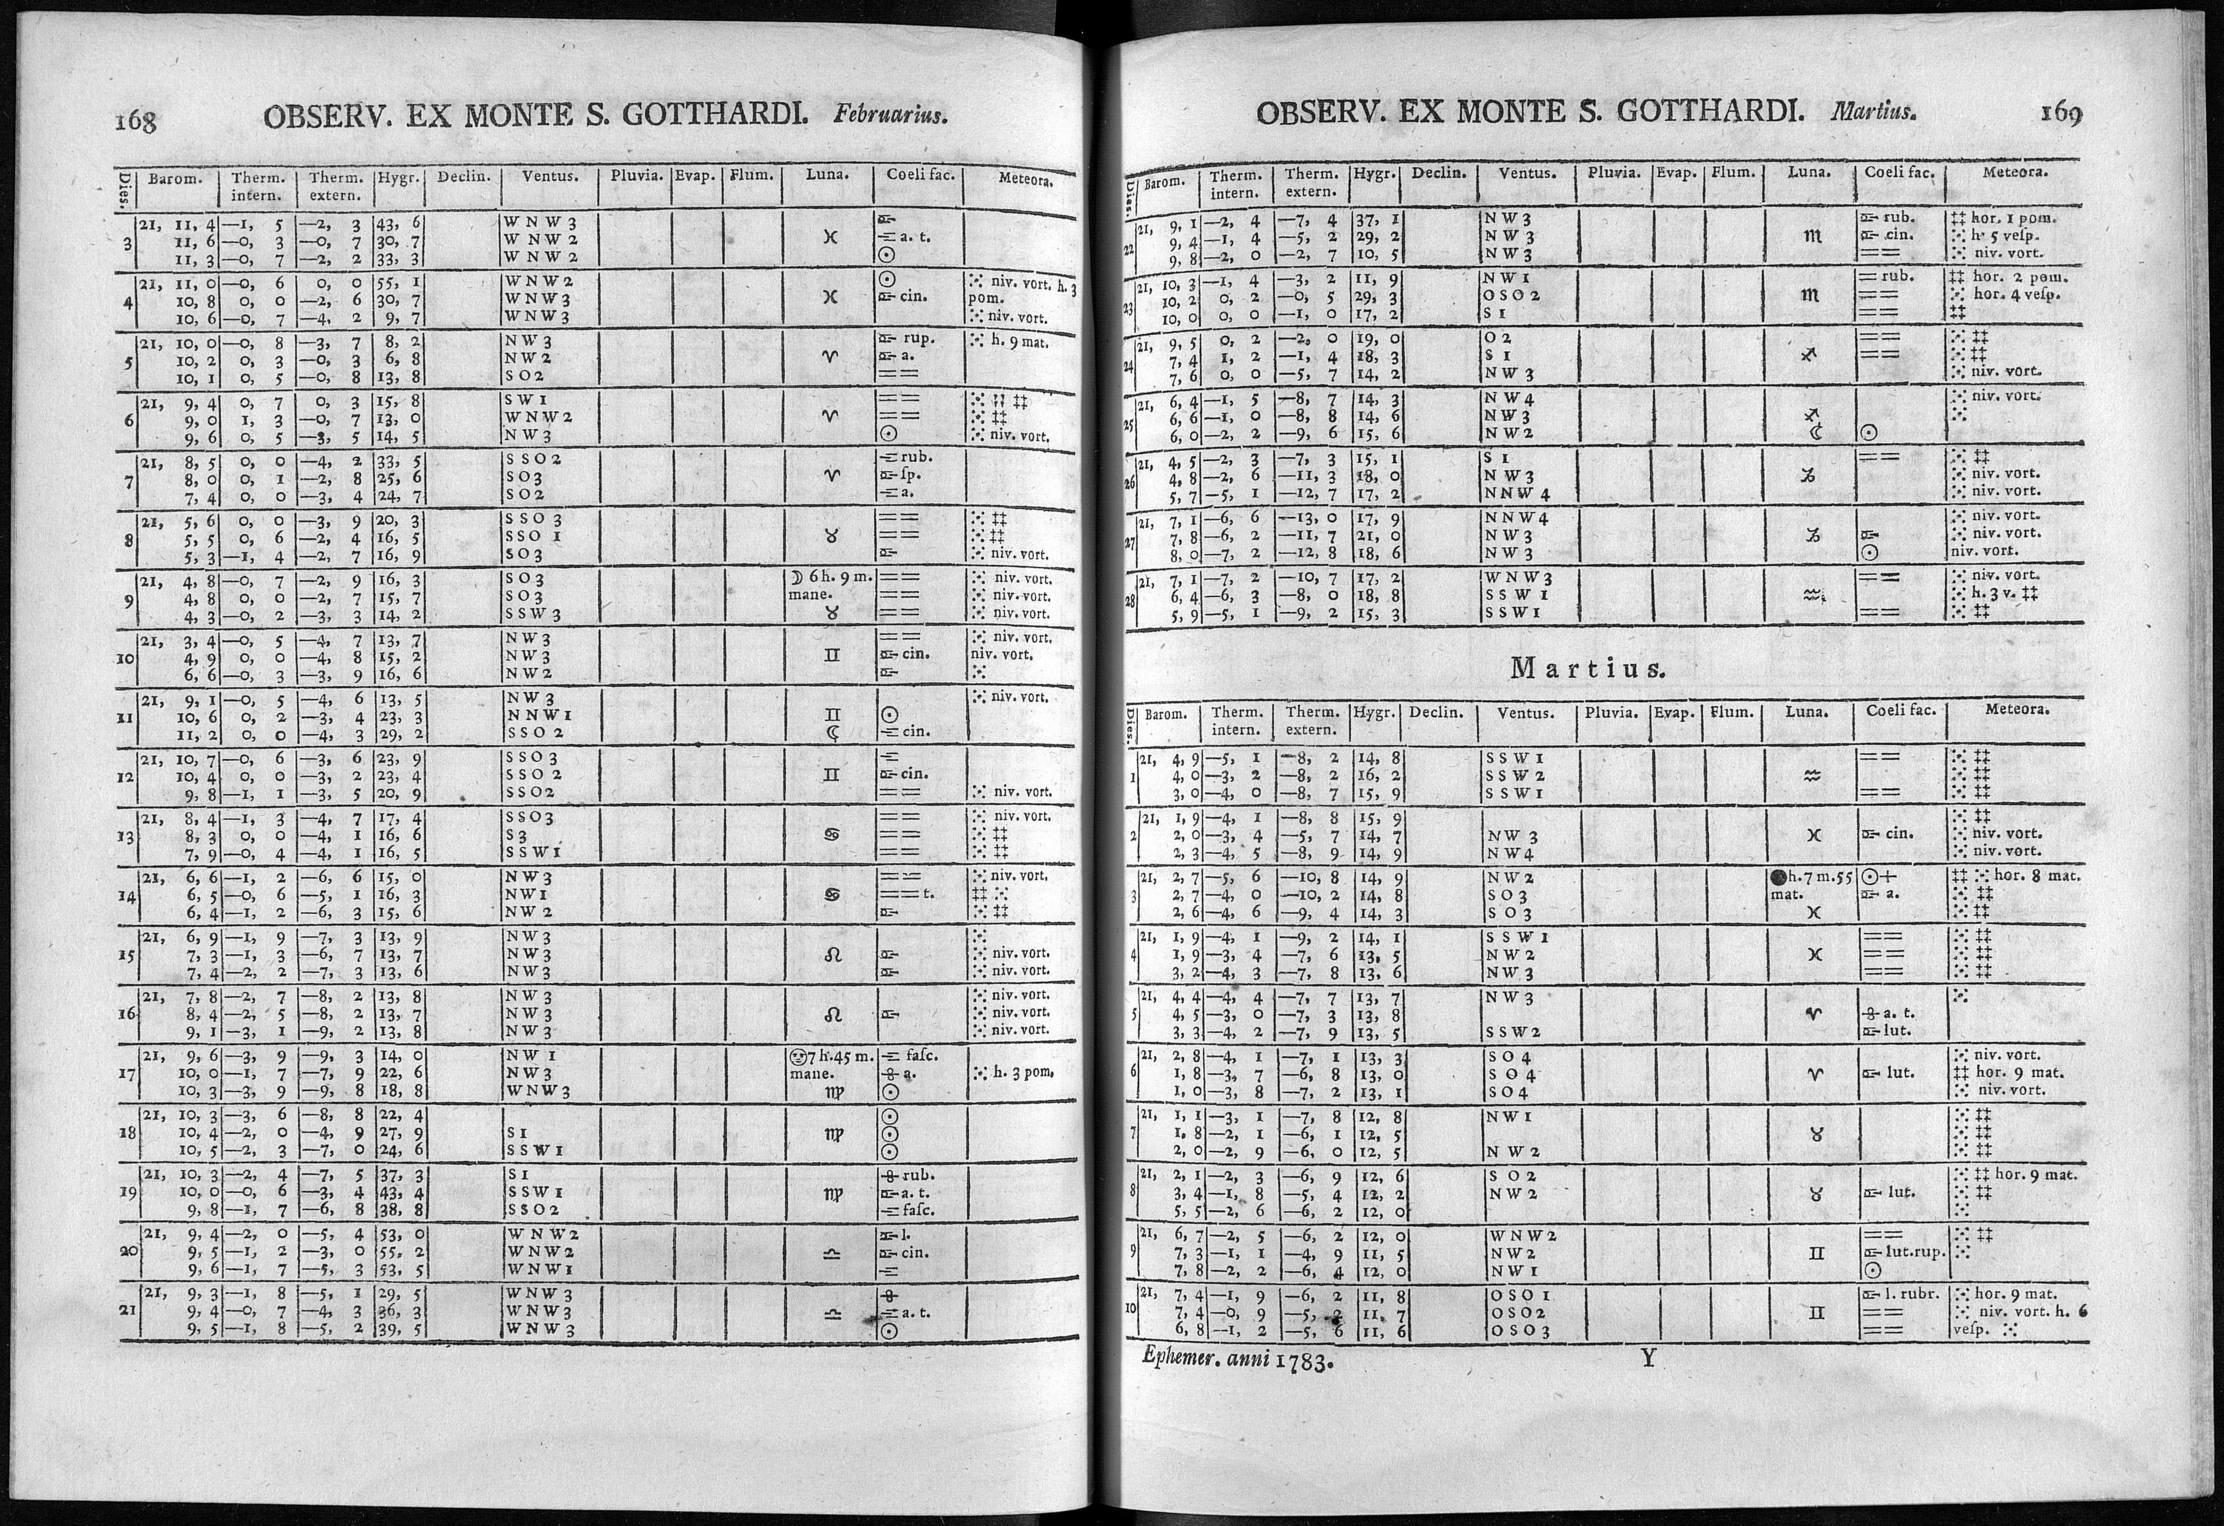 168 OBSERV. EX MONTE S. GOTTHARDI. Februarius.
Dies. Barom. Therm. intern. Therm. extern. Hygr. Declin. Ventus. Pluvia. Evap. Flum. Luna. Coeli fac. Meteora.
21, 11, 4 —1, 5 —2, 3 43, 6 W N W 3
3 11, 6 —0, 3 —0, 7 30, 7 W N W 2 ♓ a. t.
11, 3 —0, 7 —2, 2 33, 3 W N W 2 ☉
21, 11, 0 —0, 6 0, 0 55, 1 W N W 2 ☉ ⁙ niv. vort. h. 3
4 10, 8 0, 0 —2, 6 30, 7 W N W 3 ♓ cin. pom.
10, 6 —0, 7 —4, 2 9, 7 W N W 3 ⁙ niv. vort.
21, 10, 0 —0, 8 —3, 7 8, 2 N W 3 rup. ⁙ h. 9 mat.
5 10, 2 0, 3 —0, 3 6, 8 N W 2 ♈ a.
10, 1 0, 5 —0, 8 13, 8 S O 2 ==
21, 9, 4 0, 7 0, 3 15, 8 S W 1 == ⁙ ‡‡
6 9, 0 1, 3 —0, 7 13, 0 W N W 2 ♈ == ⁙ ‡‡
9, 6 0, 5 —3, 5 14, 5 N W 3 ☉ ⁙ niv. vort.
21, 8, 5 0, 0 —4, 2 33, 5 S S O 2 rub.
7 8, 0 0, 1 —2, 8 25, 6 S O 3 ♈ ſp.
7, 4 0, 0 —3, 4 24, 7 S O 2 a.
21, 5, 6 0, 0 —3, 9 20, 3 S S O 3 == ⁙ ‡‡
8 5, 5 0, 6 —2, 4 16, 5 S S O 1 ♉ == ⁙ ‡‡
5, 3 —1, 4 —2, 7 16, 9 S O 3 ⁙ niv. vort.
21, 4, 8 —0, 7 —2, 9 16, 3 S O 3 ☽ 6 h. 9 m. == ⁙ niv. vort.
9 4, 8 0, 0 —2, 7 15, 7 S O 3 mane. == ⁙ niv. vort.
4, 3 —0, 2 —3, 3 14, 2 S S W 3 ♉ == ⁙ niv. vort.
21, 3, 4 —0, 5 —4, 7 13, 7 N W 3 == ⁙ niv. vort.
10 4, 9 0, 0 —4, 8 15, 2 N W 3 ♊ cin. niv. vort.
6, 6 —0, 3 —3, 9 16, 6 N W 2 ⁙
21, 9, 1 —0, 5 —4, 6 13, 5 N W 3 ⁙ niv. vort.
11 10, 6 0, 2 —3, 4 23, 3 N N W 1 ♊ ☉
11, 2 0, 0 —4, 3 29, 2 S S O 2 ☾ cin.
21, 10, 7 —0, 6 —3, 6 23, 9 S S O 3
12 10, 4 0, 0 —3, 2 23, 4 S S O 2 ♊ cin.
9, 8 —1, 1 —3, 5 20, 9 S S O 2 == ⁙ niv. vort.
21, 8, 4 —1, 3 —4, 7 17, 4 S S O 3 == ⁙ niv. vort.
13 8, 3 0, 0 —4, 1 16, 6 S 3 ♋ == ⁙ ‡‡
7, 9 —0, 4 —4, 1 16, 5 S S W 1 == ⁙ ‡‡
21, 6, 6 —1, 2 —6, 6 15, 0 N W 3 == ⁙ niv. vort.
14 6, 5 —0, 6 —5, 1 16, 3 N W 1 ♋ == t. ‡‡ ⁙
6, 4 —1, 2 —6, 3 15, 6 N W 2 ⁙ ‡‡
21, 6, 9 —1, 9 —7, 3 13, 9 N W 3 ⁙
15 7, 3 —1, 3 —6, 7 13, 7 N W 3 ♌ ⁙ niv. vort.
7, 4 —2, 2 —7, 3 13, 6 N W 3 ⁙ niv. vort.
21, 7, 8 —2, 7 —8, 2 13, 8 N W 3 ⁙ niv. vort.
16 8, 4 —2, 5 —8, 2 13, 7 N W 3 ♌ ⁙ niv. vort.
9, 1 —3, 1 —9, 2 13, 8 N W 3 ⁙ niv. vort.
21, 9, 6 —3, 9 —9, 3 14, 0 N W 1 7 h. 45 m. faſc.
17 10, 0 —1, 7 —7, 9 22, 6 N W 3 mane. a. ⁙ h. 3 pom.
10, 3 —3, 9 —9, 8 18, 8 W N W 3 ♍ ☉
21, 10, 3 —3, 6 —8, 8 22, 4 ☉
18 10, 4 —2, 0 —4, 9 27, 9 S 1 ♍ ☉
10, 5 —2, 3 —7, 0 24, 6 S S W 1 ☉
21, 10, 3 —2, 4 —7, 5 37, 3 S 1 rub.
19 10, 0 —0, 6 —3, 4 43, 4 S S W 1 ♍ a. t.
9, 8 —1, 7 —6, 8 38, 8 S S O 2 faſc.
21, 9, 4 —2, 0 —5, 4 53, 0 W N W 2 l.
20 9, 5 —1, 2 —3, 0 55, 2 W N W 2 ♎ cin.
9, 6 —1, 7 —5, 3 53, 5 W N W 1
21, 9, 3 —1, 8 —5, 1 29, 5 W N W 3
21 9, 4 —0, 7 —4, 3 36, 3 W N W 3 ♎ a. t.
9, 5 —1, 8 —5, 2 39, 5 W N W 3 ☉
OBSERV. EX MONTE S. GOTTHARDI. Martius. 169
Dies. Barom. Therm. intern. Therm. extern. Hygr. Declin. Ventus. Pluvia. Evap. Flum. Luna. Coeli fac. Meteora.
21, 9, 1 —2, 4 —7, 4 37, 1 N W 3 rub. ‡‡ hor. 1 pom.
22 9, 4 —1, 4 —5, 2 29, 2 N W 3 ♏ cin. ⁙ h. 5 veſp.
9, 8 —2, 0 —2, 7 10, 5 N W 3 == ⁙ niv. vort.
21, 10, 3 —1, 4 —3, 2 11, 9 N W 1 = rub. ‡‡ hor. 2 pom.
23 10, 2 0, 2 —0, 5 29, 3 O S O 2 ♏ == ⁙ hor. 4 veſp.
10, 0 0, 0 —1, 0 17, 2 S 1 == ‡‡
21, 9, 5 0, 2 —2, 0 19, 0 O 2 == ⁙ ‡‡
24 7, 4 1, 2 —1, 4 18, 3 S 1 ♐ == ⁙ ‡‡
7, 6 0, 0 —5, 7 14, 2 N W 3 ⁙ niv. vort.
21, 6, 4 —1, 5 —8, 7 14, 3 N W 4 ⁙ niv. vort.
25 6, 6 —1, 0 —8, 8 14, 6 N W 3 ♐ ⁙
6, 0 —2, 2 —9, 6 15, 6 N W 2 ☾ ☉
21, 4, 5 —2, 3 —7, 3 15, 1 S 1 == ⁙ ‡‡
26 4, 8 —2, 6 —11, 3 18, 0 N W 3 ♑ ⁙ niv. vort.
5, 7 —5, 1 —12, 7 17, 2 N N W 4 ⁙ niv. vort.
21, 7, 1 —6, 6 —13, 0 17, 9 N N W 4 ⁙ niv. vort.
27 7, 8 —6, 2 —11, 7 21, 0 N W 3 ♑ ⁙ niv. vort.
8, 0 —7, 2 —12, 8 18, 6 N W 3 ☉ niv. vort.
21, 7, 1 —7, 2 —10, 7 17, 2 W N W 3 == ⁙ niv. vort.
28 6, 4 —6, 3 —8, 0 18, 8 S S W 1 ♒ ⁙ h. 3 v. ‡‡
5, 9 —5, 1 —9, 2 15, 3 S S W 1 == ⁙ ‡‡
Martius.
Dies. Barom. Therm. intern. Therm. extern. Hygr. Declin. Ventus. Pluvia. Evap. Flum. Luna. Coeli fac. Meteora.
21, 4, 9 —5, 1 —8, 2 14, 8 S S W 1 == ⁙ ‡‡
1 4, 0 —3, 2 —8, 2 16, 2 S S W 2 ♒ ⁙ ‡‡
3, 0 —4, 0 —8, 7 15, 9 S S W 1 == ⁙ ‡‡
21, 1, 9 —4, 1 —8, 8 15, 9 ⁙ ‡‡
2 2, 0 —3, 4 —5, 7 14, 7 N W 3 ♓ cin. ⁙ niv. vort.
2, 3 —4, 5 —8, 9 14, 9 N W 4 ⁙ niv. vort.
21, 2, 7 —5, 6 —10, 8 14, 9 N W 2 ● h. 7 m. 55 ☉+ ‡‡ ⁙ hor. 8 mat.
3 2, 7 —4, 0 —10, 2 14, 8 S O 3 mat. a. ⁙ ‡‡
2, 6 —4, 6 —9, 4 14, 3 S O 3 ♓ ⁙ ‡‡
21, 1, 9 —4, 1 —9, 2 14, 1 S S W 1 == ⁙ ‡‡
4 1, 9 —3, 4 —7, 6 13, 5 N W 2 ♓ == ⁙ ‡‡
3, 2 —4, 3 —7, 8 13, 6 N W 3 == ⁙ ‡‡
21, 4, 4 —4, 4 —7, 7 13, 7 N W 3 ⁙
5 4, 5 —3, 0 —7, 3 13, 8 ♈ a. t.
3, 3 —4, 2 —7, 9 13, 5 S S W 2 lut.
21, 2, 8 —4, 1 —7, 1 13, 3 S O 4 ⁙ niv. vort.
6 1, 8 —3, 7 —6, 8 13, 0 S O 4 ♈ lut. ‡‡ hor. 9 mat.
1, 0 —3, 8 —7, 2 13, 1 S O 4 ⁙ niv. vort.
21, 1, 1 —3, 1 —7, 8 12, 8 N W 1 ⁙ ‡‡
7 1, 8 —2, 1 —6, 1 12, 5 ♉ ⁙ ‡‡
2, 0 —2, 9 —6, 0 12, 5 N W 2 ⁙ ‡‡
21, 2, 1 —2, 3 —6, 9 12, 6 S O 2 ⁙ ‡‡ hor. 9 mat.
8 3, 4 —1, 8 —5, 4 12, 2 N W 2 ♉ lut. ⁙ ‡‡
5, 5 —2, 6 —6, 2 12, 0 ⁙
21, 6, 7 —2, 5 —6, 2 12, 0 W N W 2 == ⁙ ‡‡
9 7, 3 —1, 1 —4, 9 11, 5 N W 2 ♊ lut. rup. ⁙
7, 8 —2, 2 —6, 4 12, 0 N W 1 ☉
21, 7, 4 —1, 9 —6, 2 11, 8 O S O 1 l. rubr. ⁙ hor. 9 mat.
10 7, 4 —0, 9 —5, 2 11, 7 O S O 2 ♊ == ⁙ niv. vort. h. 6
6, 8 —1, 2 —5, 6 11, 6 O S O 3 == veſp. ⁙
Ephemer. anni 1783. Y